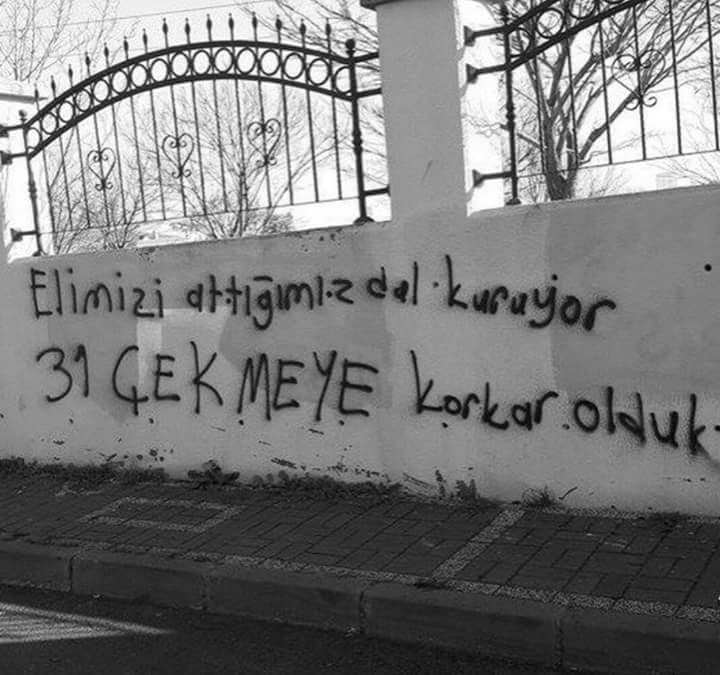 Elimizi attığımız dal kuruyor
31 ÇEKMEYE korkar olduk